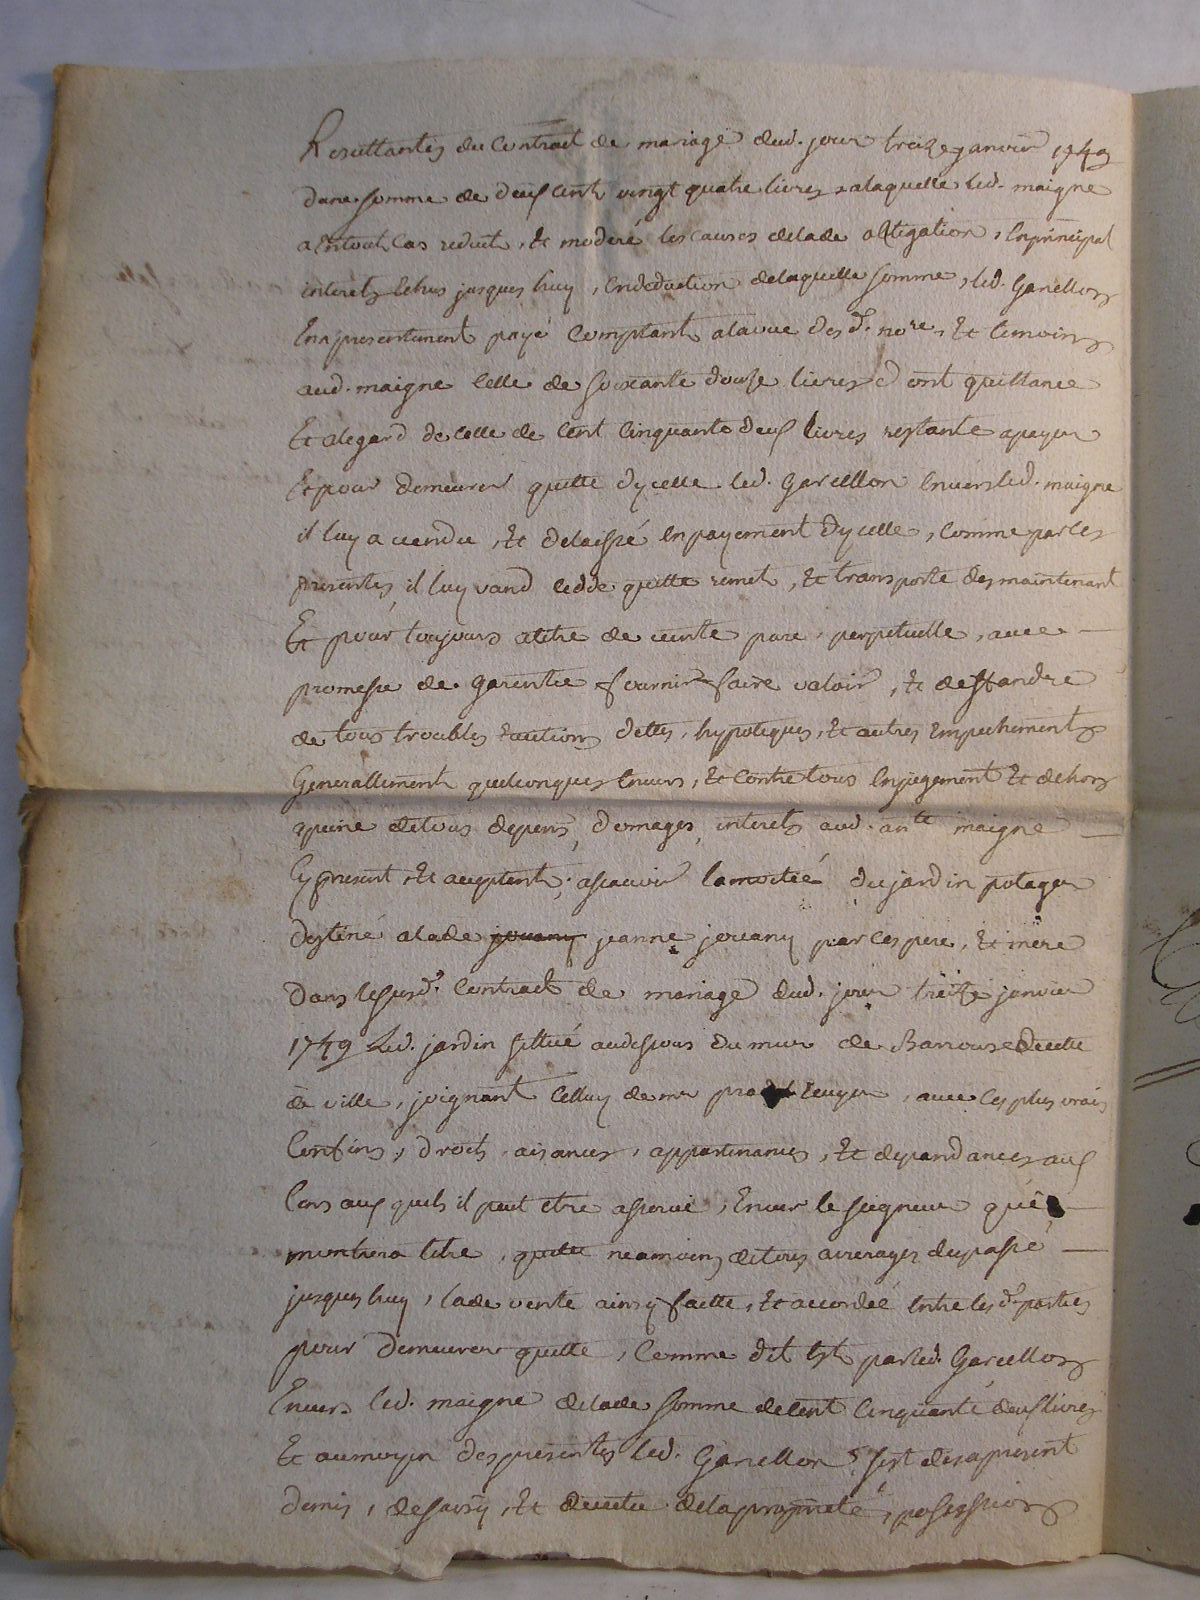 Resultantes du Contract de mariage dud. jour treize janvier 1749
dune somme de deux cent vingt quatre livres a laquelle led. maigne
a entout Cas reduit, et moderé les causes delade obligation, enprincipal
interets echus jusques huy, en deduction delaquelle somme, led. Garcellon
En a presentement payé Comptant alavue des d. nores, et temoins
aud. maigne Celle de soixante douse livres dont quittance
Et alegard de Celle de Cent Cinquante deux livres restante apayer
Et pour demeurer quitte dycelle led. Garcellon envers led. maigne
il luy a vendu, et delaissé en payement dycelle, Comme par les
presentes, il luy vand cedde quitte remet, et transporte des maintenant
Et pour toujours atitre de vente pure, perpetuelle, avec
promesse de garentie fournir faire valoir, et deffandre
de tous troubles evictions dettes, hypoteques, et autres Empechements
Generallement quelconques Envers, et contre tous En jugement et dehors
apeine detous depens, domages, interets aud. ante maigne
Cy present, et acceptent, ascavoir lamoitié du jardin potager
destiné alade jouany jeanne joreany par ses pere, et mere
Dans le susd. Contract de mariage dud. jour treize janvier
1749 Led. jardin sittué audessous du mur de Barrouse decette
de ville, joignant Celluy de mr Euyer, avec ses plus vrais
Confins, droits, aisances, appartenances, et dependances aux
Cens aux quels il peut etre asservi, Envers le seigneur que
montrera titre, quitte neamoins detous arrerages dupassé
jusques huy, lade vente ainsy faitte, et accordée Entre les d. parties
pour Demeurer quitte, Comme dit Est par led. Garcellon
Envers led. maigne delade somme de Cent Cinquante deux livres
Et aumoyen despresentes led. Garcellon s'est des apresent
demis, desaisy, et devetu delapropriete, possession